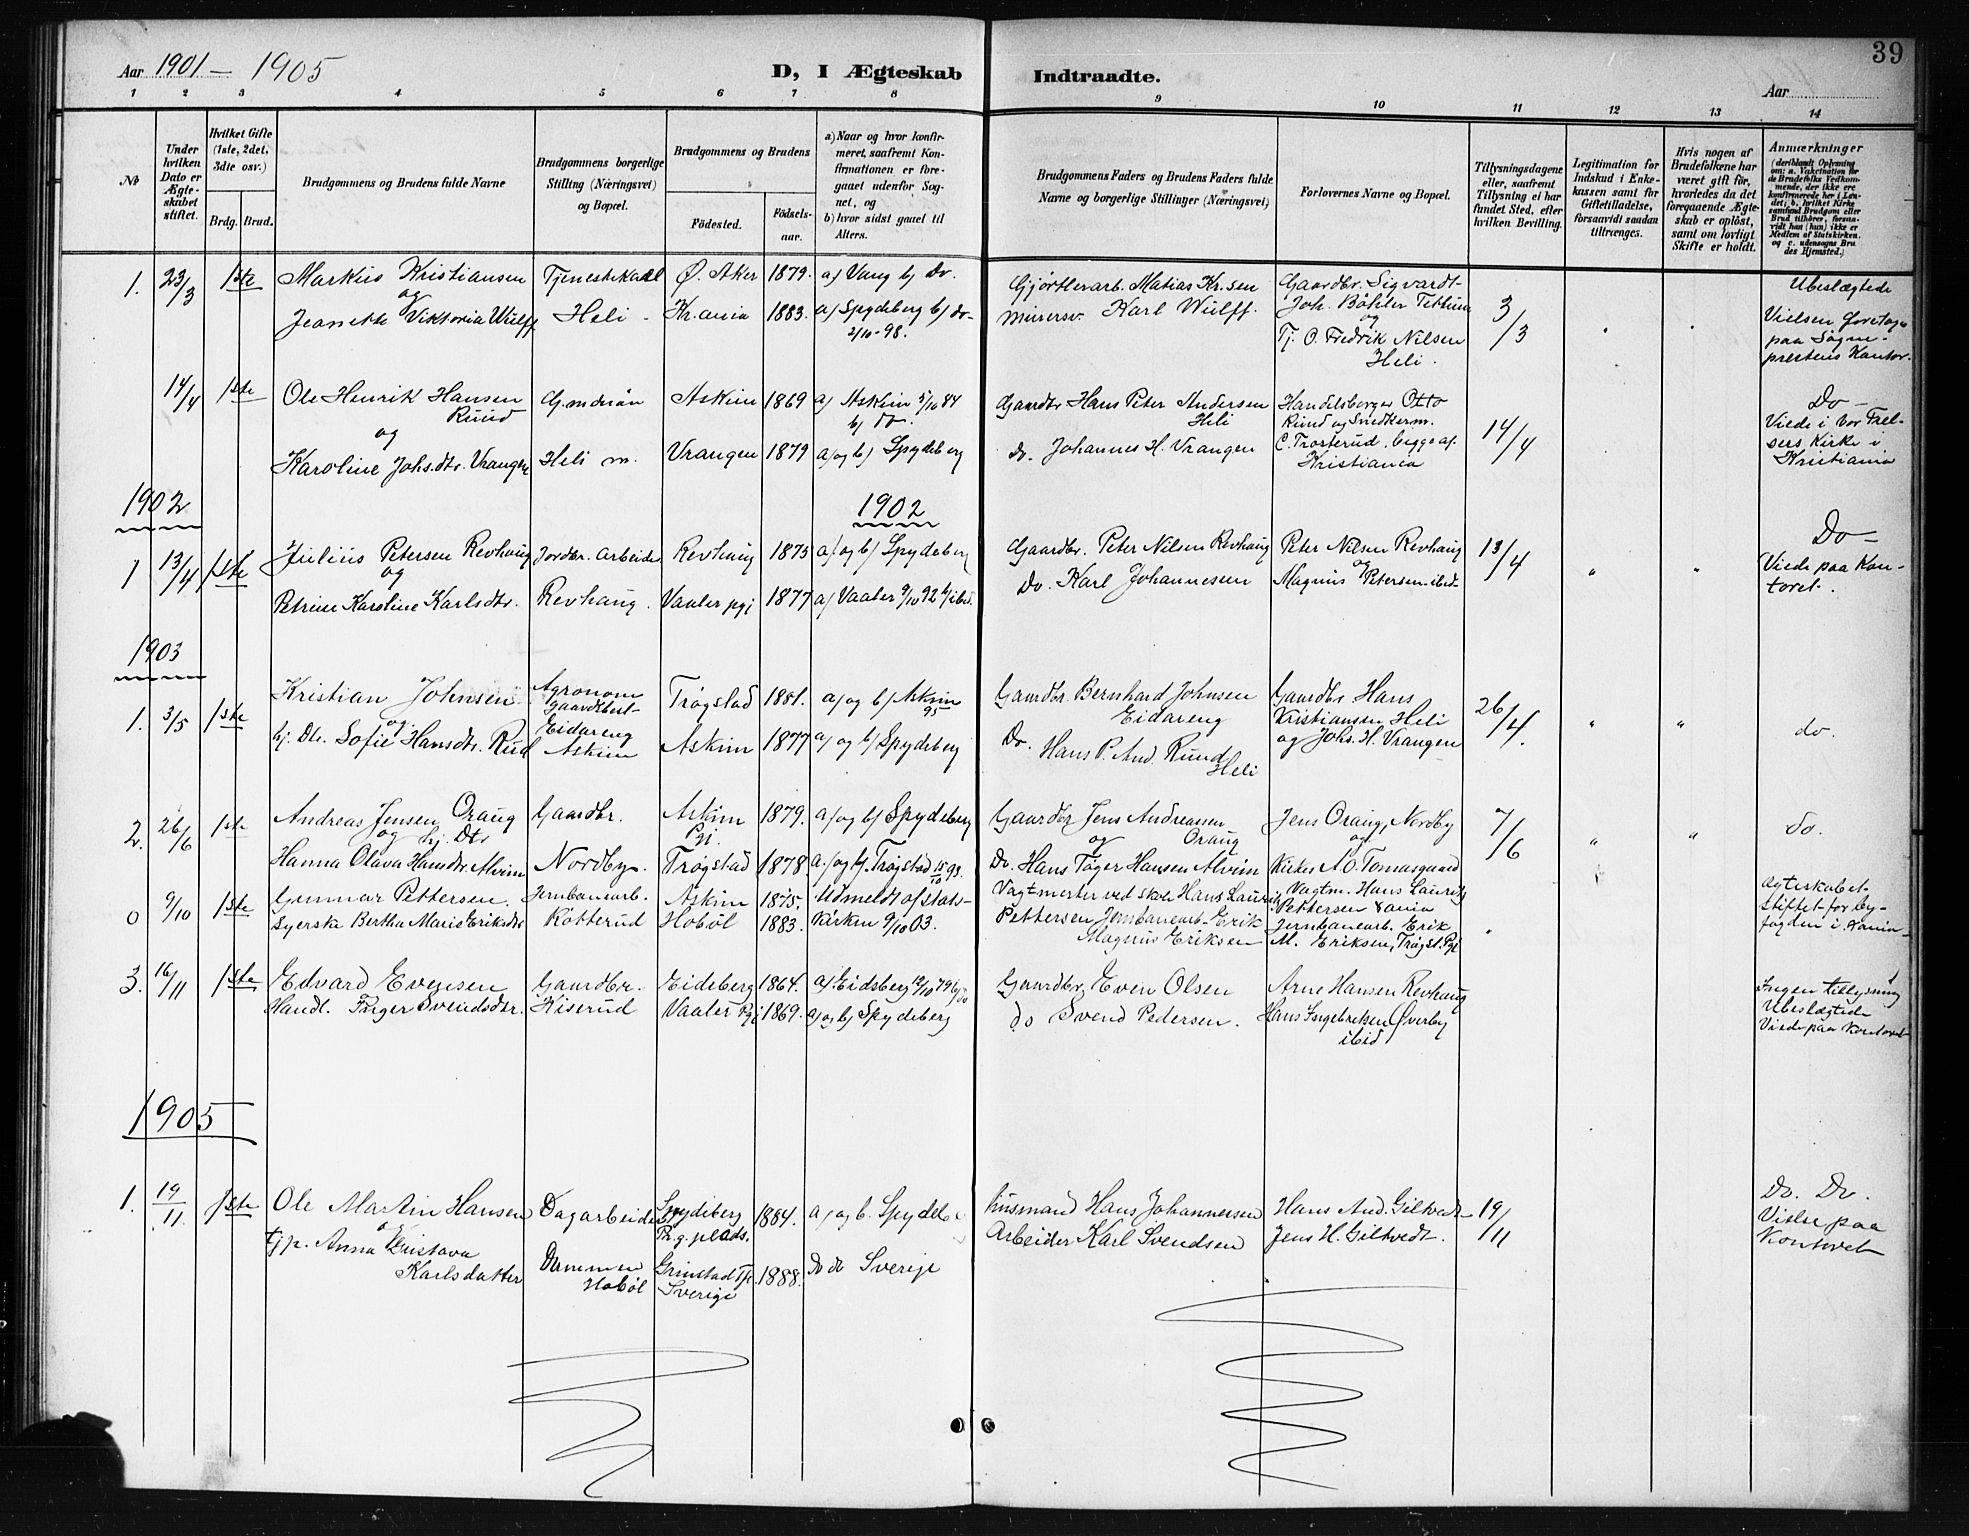 39
Aar 1901 – 1905
D, I Ægteskab Indtraadte.
Aar
1 2 3 4 5 6 7 8 9 10 11 12 13 14
No
Under hvilken Dato er Ægteskabet stiftet.
Hvilket Gifte (1ste, 2det, 3die osv.)
Brdg. Brud.
Brudgommens og Brudens fulde Navne
Brudgommens borgerlige Stilling (Næringsvei) og Bopæl.
Brudgommens og Brudens
Fødested.
Fødselsaar.
a) Naar og hvor konfirmeret, saafremt Konfirmationen er foregaaet udenfor Sognet, og
b) hvor sidst gaaet til Alters.
Brudgommens Faders og Brudens Faders fulde Navne og borgerlige Stillinger (Næringsvei)
Forlovernes Navne og Bopæl.
Tillysningsdagene eller, saafremt Tillysning ei har fundet Sted, efter hvilken Bevilling.
Legitimation for Indskud i Enkekassen samt for Giftetilladelse, forsaavidt saadan tiltrænges.
Hvis nogen af Brudefolkene har været gift før, hvorledes da det foregaaende Ægteskab er opløst, samt om lovligt Skifte er holdt.
Anmærkninger (deriblandt Oplysning om: a. Vakcination for de Brudefolks Vedkommende, der ikke ere konfirmerede her i Landet; b. hvilket Kirkesamfund Brudgom eller Brud tilhører, forsaavidt han (hun) ikke er Medlem af Statskirken, og c. udensogns Brudes Hjemsted.)
1. 23/3 1ste Markus Kristiansen Tjenestekarl Ø. Aker 1879. a/ Vang b/ Do. Gjørtlerarb. Matias Kr.sen Gaardbr. Sigvardt Ubeslægtede
og Joh. Bøhler Tettum
Jeanette Viktoria Wulff Heli - Kr.ania 1883. a/ Spydeberg b/ do- 2/10-98. Murersv. Karl Wulff. og 3/3 Vielsen foretaget
Tj. O. Fredrik Nilsen paa Sogne-
Heli. prestens Kontor.
14/4 1ste Ole Henrik Hansen G.mdsøn Askim 1869 a/ Askim 5/10 84 b/ do. Gaardbr Hans Peter Andersen Handelsborger Otto Do-
Ruud Heli Ruud og Snedkerm. Viede i Vor Frel-
og C. Trosterud, begge af 14/4 sers Kirke i
Karoline Johs.dtr. Vrangen Heli m. Vrangen 1879 a/ og b/ Spydeberg do. Johannes H. Vrangen Kristiania Kristiania
1902 1902
1 13/4 1ste Julius Petersen Revhaug Jordbr. Arbeider Revhaug 1875 a/ og b/ Spydeberg Gaardbr. Peter Nilsen Revhaug Peter Nilsen Revhaug 13/4 " " Do-
og og Viede paa Kon-
Petrine Karoline Karlsdtr. Revhaug. Vaaler pgj 1877 a/ Vaaler 9/10 92 b/ ibid. Do. Karl Johannesen Magnus Petersen-ibid- toret.
1903
1. 3/5 1ste Kristian Johnsen Agronom Trøgstad 1881. a/ og b/ Askim 95 Gaardbr. Bernhard Johnsen Gaardbr Hans 26/4. " " do.
og Eidareng Eidareng Kristiansen Heli
hj. Dtr. Sofie Hansdtr. Rud Askim Askim 1877 a/ og b/ Spydeberg Do. Hans P. And. Ruud Heli og Johs. H. Vrangen
2. 26/6 1ste Andreas Jensen Oraug Gaardbr. Askim Pgj. 1879. a/ og b/ Spydeberg Gaardbr Jens Andreassen Jens Oraug, Nordby 7/6 " " do.
og hj. Dtr og Oraug og
Hanna Olava Hansdtr. Alvim Nordby. Trøgstad 1878 a/ og b/. Trøgstad 15/10 93. Do. Hans Tøger Hansen Alvim Kirkes. A. O. Tomasgaard
0 9/10 1ste Gunnar Pettersen. Jernbanearb. Askim 1875. Udmeldt af stats- Vagtmester ved skole Hans Lauritz Vagtm. Hans Lauritz Ægteskabet-
Pettersen X.ania stiftet for by-
Syerske Bertha Marie Eriksdtr Rotterud Hobøl 1883. kirken 9/10 03. Pettersen Jernbanearb-Erik Jernbanearb. Erik fogden i X.ania-
Magnus Eriksen M. Eriksen, Trøgst. Pgj
3. 16/11 1ste Edvard Evensen Gaardbr. Eidsberg 1864. a/ Eidsberg 12/10 79 b/ do Gaardbr. Even Olsen Arne Hansen Revhaug Ingen tillysning
Handl. Inger Svendsdtr. Kiserud Vaaler Pgj 1869. a/ og b/ Spydeberg do Svend Pedersen. Hans Ingebretsen Øverby Ubeslægtede
ibid Viede paa Kontoret
1905
1. 19/11. 1ste Ole Martin Hansen Dagarbeider Spydeberg Pr.g.plads. 1884. a/ og b. Spydeb. Husmand Hans Johannesen Hans And. Giltvedt 19/11 Do. Do.
og Vielse paa
tjp. Anna Gustava Arbeider Karl Svendsen Jens H. Giltvedt. Kontoret
Karlsdatter Dammen Hobøl Grinstad Pgj. Sverige 1888. do do Sverige